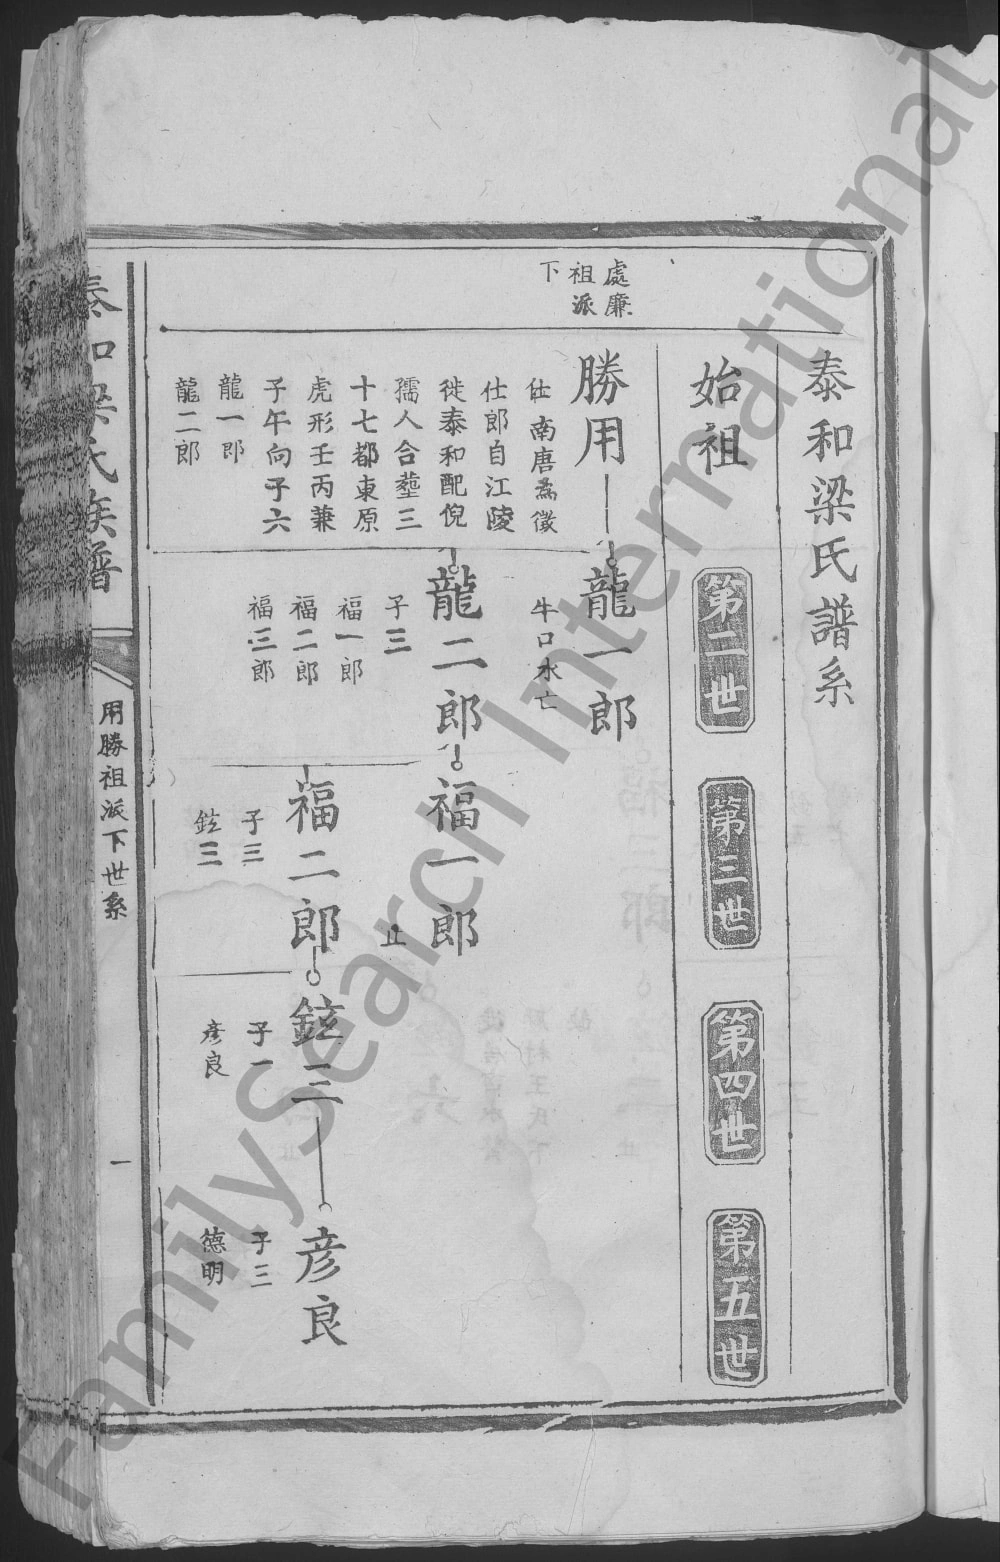 泰和梁氏譜系
始祖
第二世
第三世
第四世
第五世
處廉
祖派
下
勝用
仕南唐為徵
仕郎自江陵
徙泰和配倪
孺人合塟三
十七都東原
虎形壬丙兼
子午向子六
龍一郎
龍二郎
龍一郎
牛口水亡
龍二郎
子三
福一郎
福二郎
福三郎
福一郎
止
福二郎
子三
鉉三
鉉三
子一
彦良
彦良
子三
德明
泰和梁氏族譜
用勝祖派下世系
一
FamilySearch International